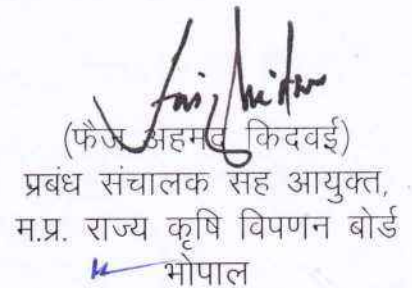 (फैज अहमद किदवई)
प्रबंध संचालक सह आयुक्त,
म.प्र. राज्य कृषि विपणन बोर्ड
भोपाल